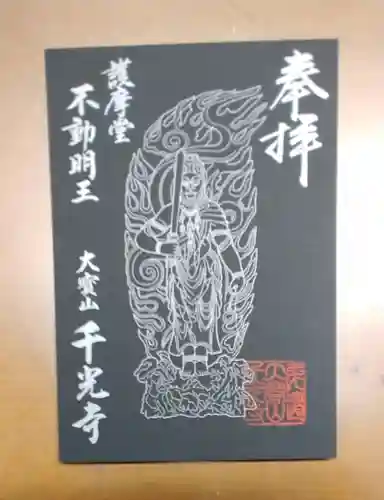 奉拝
護摩堂
不動明王
大寳山 千光寺